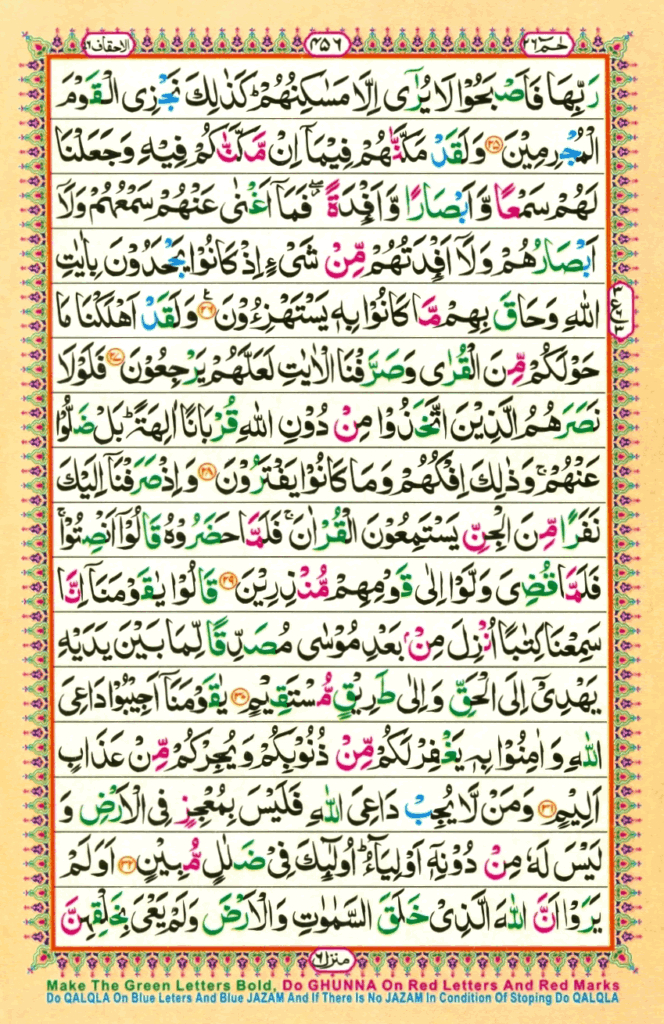 الاحقاف ٤٦
٤٥٦
حٰمٓ ٢٦
رَبِّهَا فَاَصْبَحُوْا لَا يُرٰٓى اِلَّا مَسٰكِنُهُمْ ؕ كَذٰلِكَ نَجْزِى الْقَوْمَ
الْمُجْرِمِيْنَ ۝۲۵ وَلَقَدْ مَكَّنّٰهُمْ فِيْمَاۤ اِنْ مَّكَّنّٰكُمْ فِيْهِ وَجَعَلْنَا
لَهُمْ سَمْعًا وَّاَبْصَارًا وَّاَفْـِٕدَةً ۖ فَمَاۤ اَغْنٰى عَنْهُمْ سَمْعُهُمْ وَلَاۤ
اَبْصَارُهُمْ وَلَاۤ اَفْـِٕدَتُهُمْ مِّنْ شَىْءٍ اِذْ كَانُوْا يَجْحَدُوْنَ بِاٰيٰتِ
اللّٰهِ وَحَاقَ بِهِمْ مَّا كَانُوْا بِهٖ يَسْتَهْزِءُوْنَ ۝۲۶ وَلَقَدْ اَهْلَكْنَا مَا
حَوْلَكُمْ مِّنَ الْقُرٰى وَصَرَّفْنَا الْاٰيٰتِ لَعَلَّهُمْ يَرْجِعُوْنَ ۝۲۷ فَلَوْلَا
نَصَرَهُمُ الَّذِيْنَ اتَّخَذُوْا مِنْ دُوْنِ اللّٰهِ قُرْبَانًا اٰلِهَةً ؕ بَلْ ضَلُّوْا
عَنْهُمْ ۚ وَذٰلِكَ اِفْكُهُمْ وَمَا كَانُوْا يَفْتَرُوْنَ ۝۲۸ وَاِذْ صَرَفْنَاۤ اِلَيْكَ
نَفَرًا مِّنَ الْجِنِّ يَسْتَمِعُوْنَ الْقُرْاٰنَ ۚ فَلَمَّا حَضَرُوْهُ قَالُوْۤا اَنْصِتُوْا ۚ
فَلَمَّا قُضِىَ وَلَّوْا اِلٰى قَوْمِهِمْ مُّنْذِرِيْنَ ۝۲۹ قَالُوْا يٰقَوْمَنَاۤ اِنَّا
سَمِعْنَا كِتٰبًا اُنْزِلَ مِنْۢ بَعْدِ مُوْسٰى مُصَدِّقًا لِّمَا بَيْنَ يَدَيْهِ
يَهْدِىْۤ اِلَى الْحَقِّ وَاِلٰى طَرِيْقٍ مُّسْتَقِيْمٍ ۝۳۰ يٰقَوْمَنَاۤ اَجِيْبُوْا دَاعِىَ
اللّٰهِ وَاٰمِنُوْا بِهٖ يَغْفِرْ لَكُمْ مِّنْ ذُنُوْبِكُمْ وَيُجِرْكُمْ مِّنْ عَذَابٍ
اَلِيْمٍ ۝۳۱ وَمَنْ لَّا يُجِبْ دَاعِىَ اللّٰهِ فَلَيْسَ بِمُعْجِزٍ فِى الْاَرْضِ وَ
لَيْسَ لَهٗ مِنْ دُوْنِهٖۤ اَوْلِيَآءُ ؕ اُولٰٓئِكَ فِىْ ضَلٰلٍ مُّبِيْنٍ ۝۳۲ اَوَلَمْ
يَرَوْا اَنَّ اللّٰهَ الَّذِىْ خَلَقَ السَّمٰوٰتِ وَالْاَرْضَ وَلَمْ يَعْىَ بِخَلْقِهِنَّ
منزل ٦
Make The Green Letters Bold, Do GHUNNA On Red Letters And Red Marks
Do QALQLA On Blue Leters And Blue JAZAM And If There Is No JAZAM In Condition Of Stoping Do QALQLA